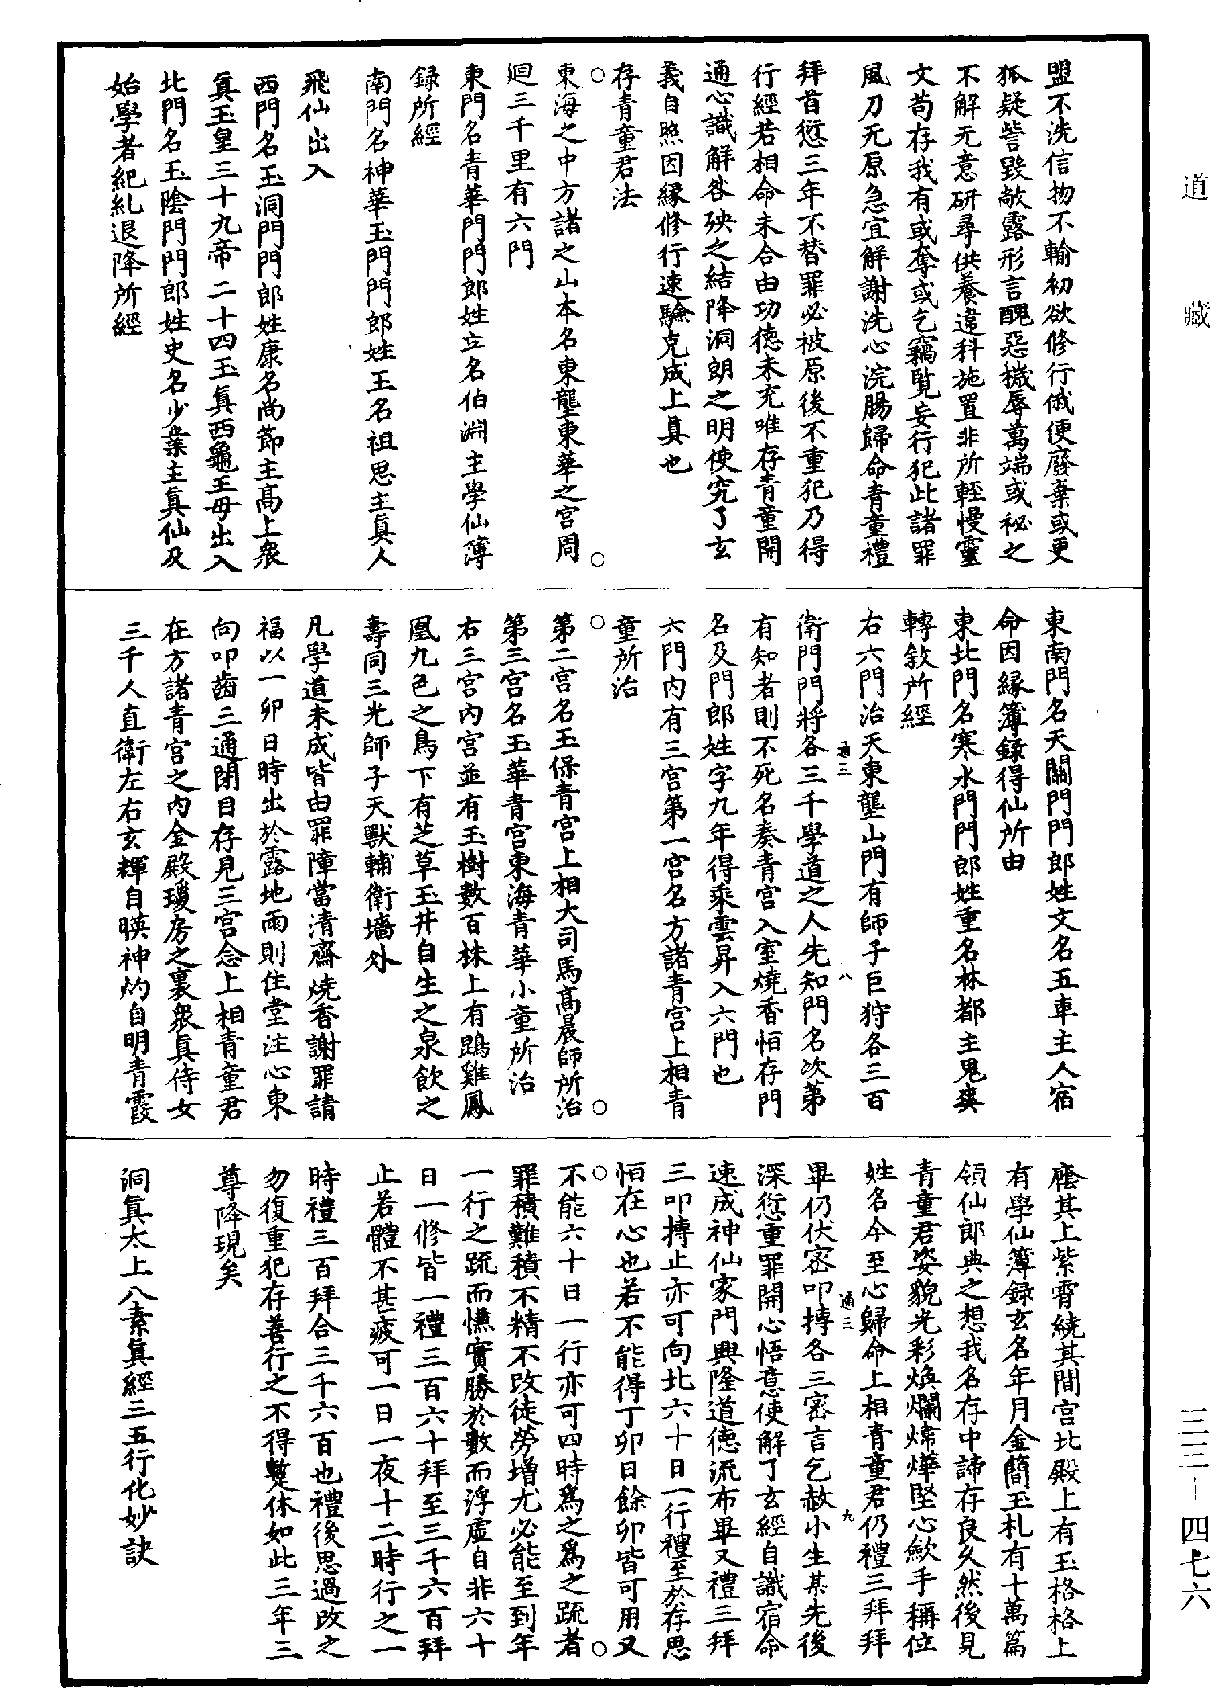 道藏
三三－四七六
盟不洗信物不輸初欲修行俄便廢棄或更
狐疑訾毀敵露形言醜惡機辱萬端或祕之
不解无意研尋供養違科施置非所輕慢靈
文苟存我有或奪或乞竊覧妄行犯此諸罪
風刀无原急宜解謝洗心浣腸歸命青童禮
拜首愆三年不替罪必被原後不重犯乃得
行經若相命未合由功德未充唯存青童開
通心識解咎殃之結降洞朗之明使究了玄
義自照因緣修行速驗克成上真也
存青童君法
東海之中方諸之山本名東壟東華之宮周
迴三千里有六門
東門名青華門門郎姓立名伯淵主學仙簿
録所經
南門名神華玉門門郎姓王名祖思主真人
飛仙出入
西門名玉洞門門郎姓康名尚節主高上衆
真玉皇三十九帝二十四玉真西龜王母出入
北門名玉陰門門郎姓史名少業主真仙及
始學者紀糺退降所經
東南門名天關門門郎姓文名五車主人宿
命因緣簿録得仙所由
東北門名寒水門門郎姓重名林都主鬼㒵
轉敘所經
右六門治天東壟山門有師子巨狩各三百
衛門門將各三千學道之人先知門名次第
有知者則不死名奏青宮入室燒香恒存門
名及門郎姓字九年得乘雲昇入六門也
六門內有三宮第一宮名方諸青宮上相青
童所治
第二宮名玉保青宮上相大司馬高晨師所治
第三宮名玉華青宮東海青華小童所治
右三宮內宮並有玉樹數百株上有鵾雞鳳
凰九色之鳥下有芝草玉井自生之泉飲之
壽同三光師子天獸輔衛墻外
凡學道未成皆由罪障當清齋燒香謝罪請
福以一卯日時出於露地雨則住堂注心東
向叩齒三通閉目存見三宮念上相青童君
在方諸青宮之內金殿瓊房之裏衆真侍女
三千人直衛左右玄輝自暎神灼自明青霞
通三
八
座其上紫雲繞其間宮北殿上有玉格格上
有學仙簿録玄名年月金簡玉札有十萬篇
領仙郎典之想我名存中諦存良久然後見
青童君姿貌光彩煥爛煒燁堅心歛手稱位
姓名今至心歸命上相青童君仍禮三拜拜
畢仍伏密叩摶各三密言乞赦小生某先後
深愆重罪開心悟意使解了玄經自識宿命
速成神仙家門興隆道德流布畢又禮三拜
三叩摶止亦可向北六十日一行禮至於存思
恒在心也若不能得丁卯日餘卯皆可用又
不能六十日一行亦可四時爲之爲之疏者
罪積難積不精不改徒勞增尤必能至到年
一行之疏而慊實勝於數而浮虛自非六十
日一修皆一禮三百六十拜至三千六百拜
止若體不甚疲可一日一夜十二時行之一
時禮三百拜合三千六百也禮後思過改之
勿復重犯存善行之不得蹔休如此三年三
尊降現矣
洞真太上八素真經三五行化妙訣
通三
九